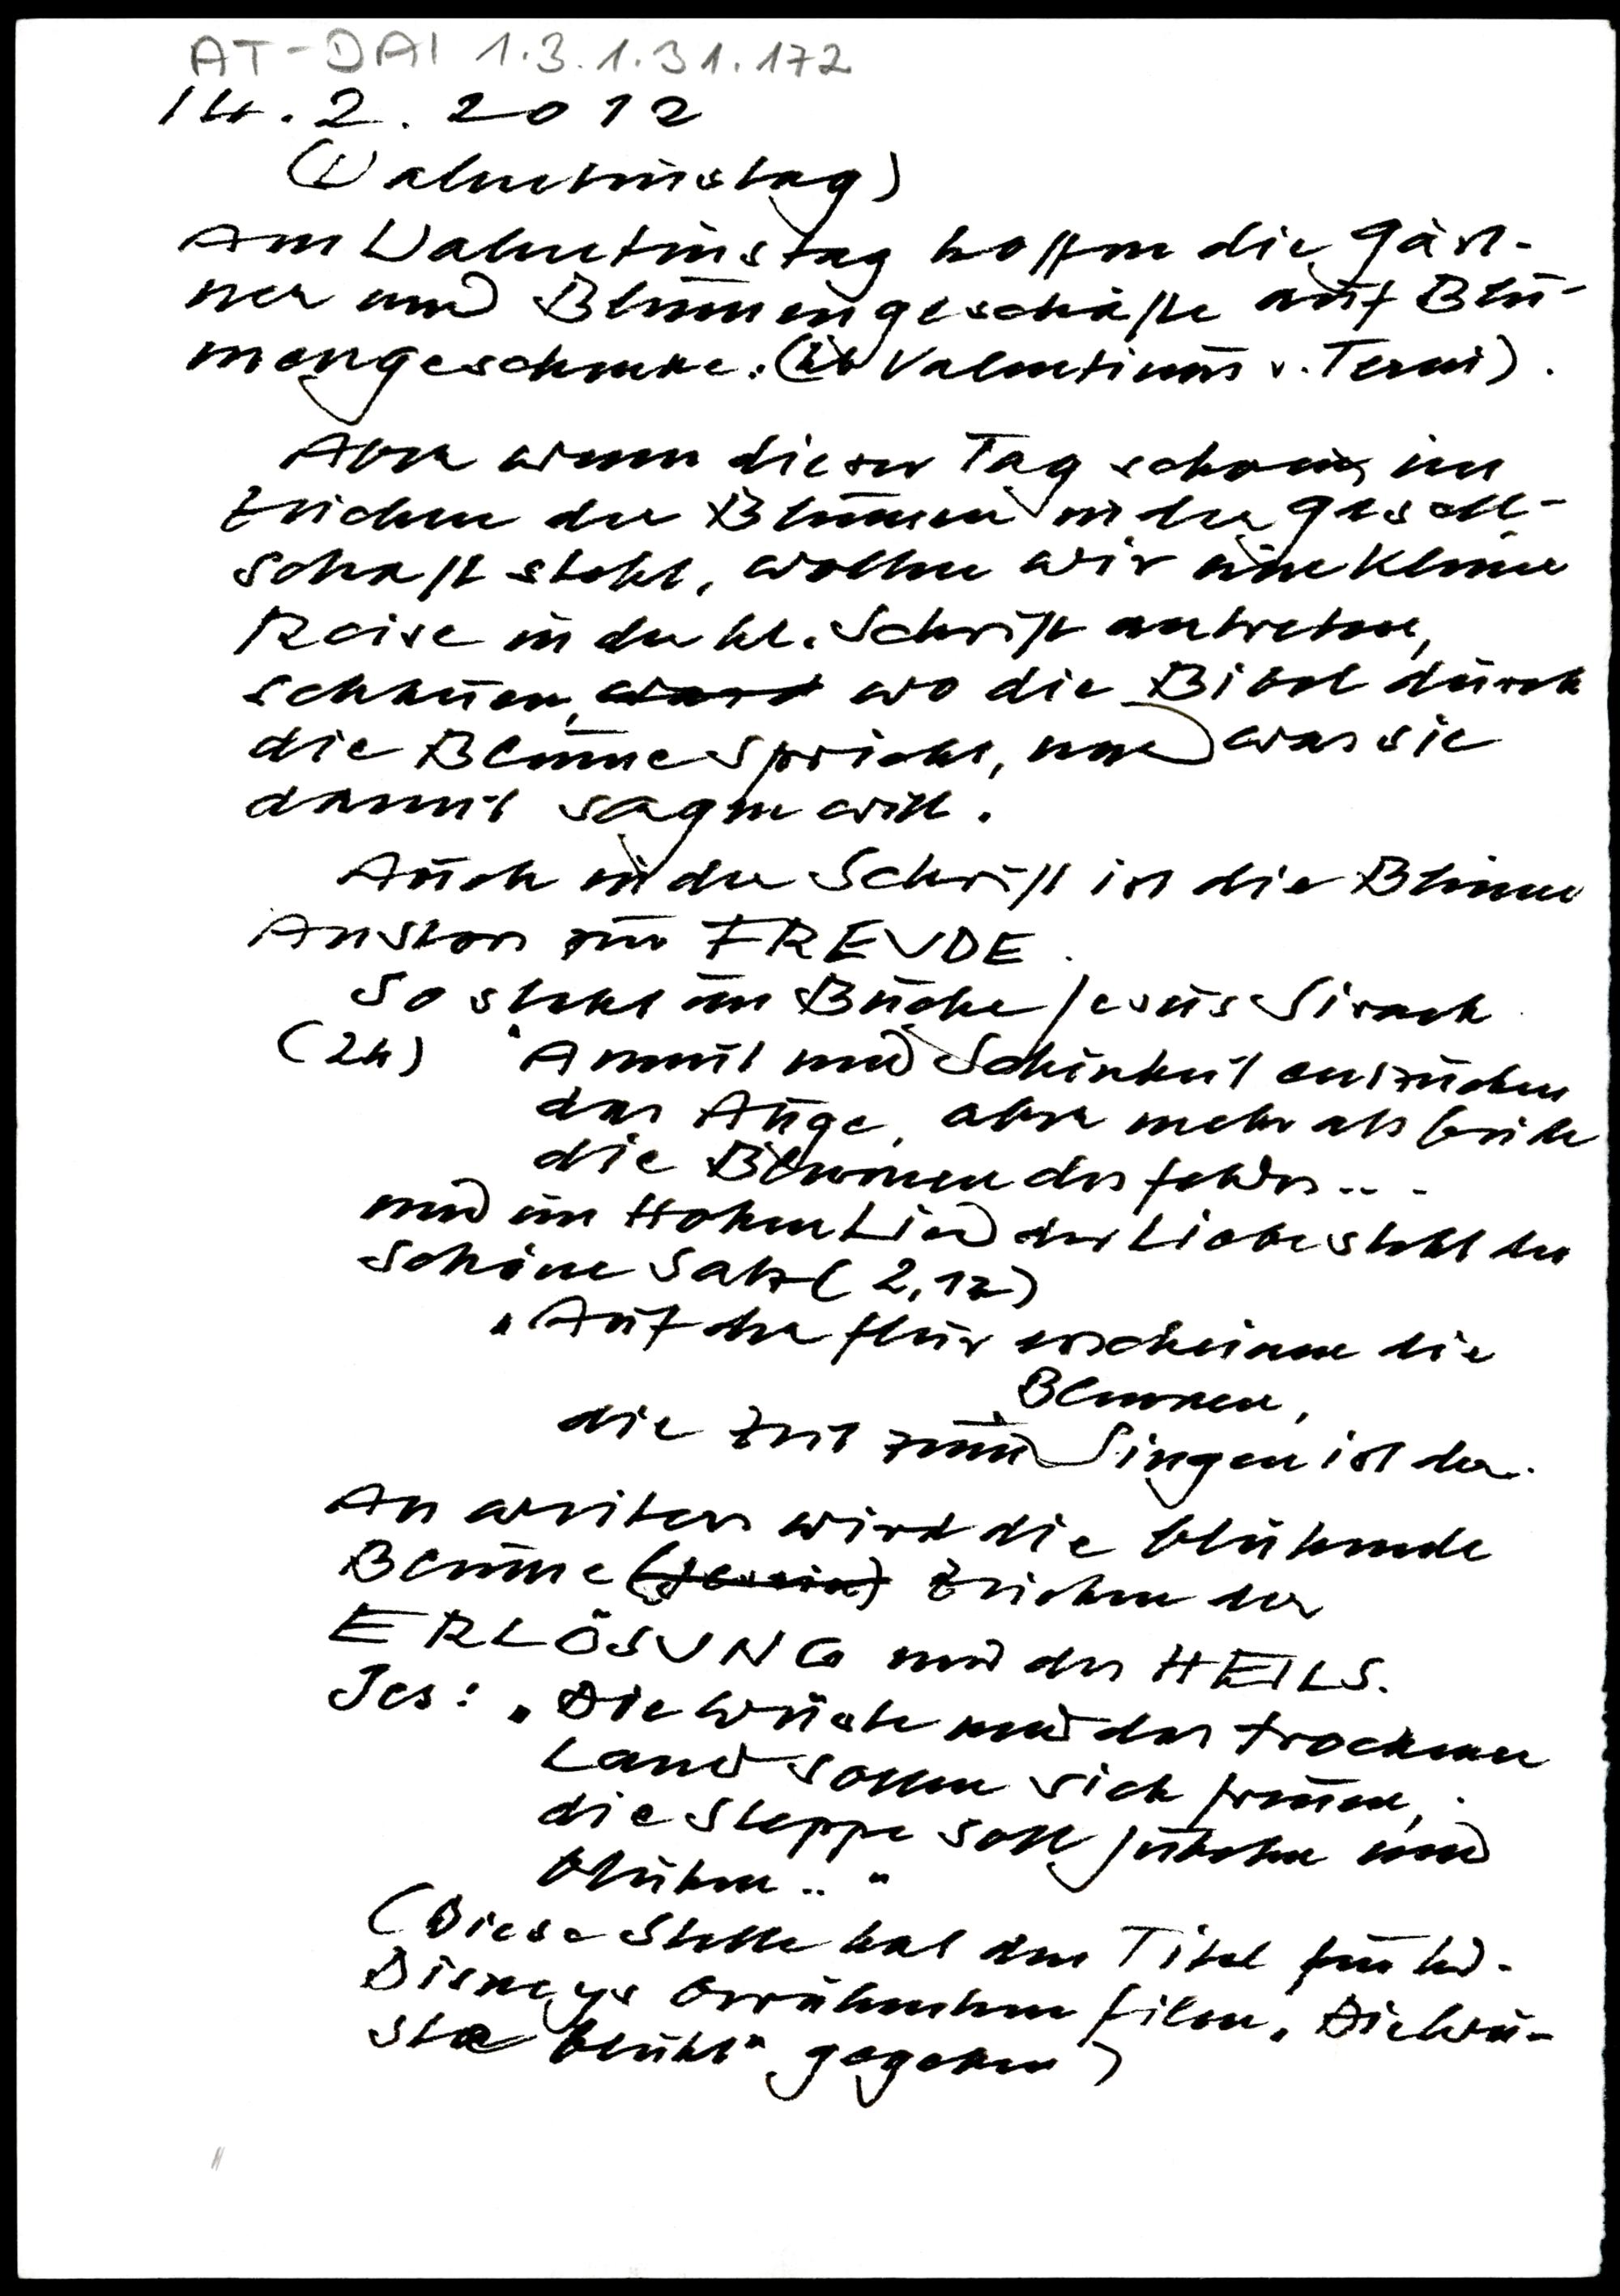 AT-DAI 1.3.1.31.172
14.2.2012
(Valentinstag)
Am Valentinstag hoffen die Gärt-
ner und Blumengeschäfte auf Blu-
mengeschenke. (Valentinus v. Terni).
Aber wenn dieser Tag schon im
Zeichen der Blumen in der Gesell-
schaft steht, wollen wir eine kleine
Reise in der hl. Schrift antreten,
schauen, wo die Bibel durch
die Blume spricht, und was sie
damit sagen will.
Auch in der Schrift ist die Blume
Anstoss zur FREUDE.
So steht im Buche Jesus Sirach
(24) "Anmut und Schönheit entzücken
das Auge, aber mehr als beide
die Blumen des Feldes...
und im Hohen Lied der Liebe steht der
schöne Satz (2,12)
"Auf der Flur erscheinen die
Blumen,
die Zeit zum Singen ist da.
An weiters wird die blühende
Blume Zeichen der
ERLÖSUNG und des HEILS.
Jes: "Die Wüste und das trockene
Land sollen sich freuen,
die Steppe soll jubeln und
blühen.."
(Diese Stelle hat den Titel für W.
Disneys berühmten Film "Die Wü-
ste blüht" gegeben)